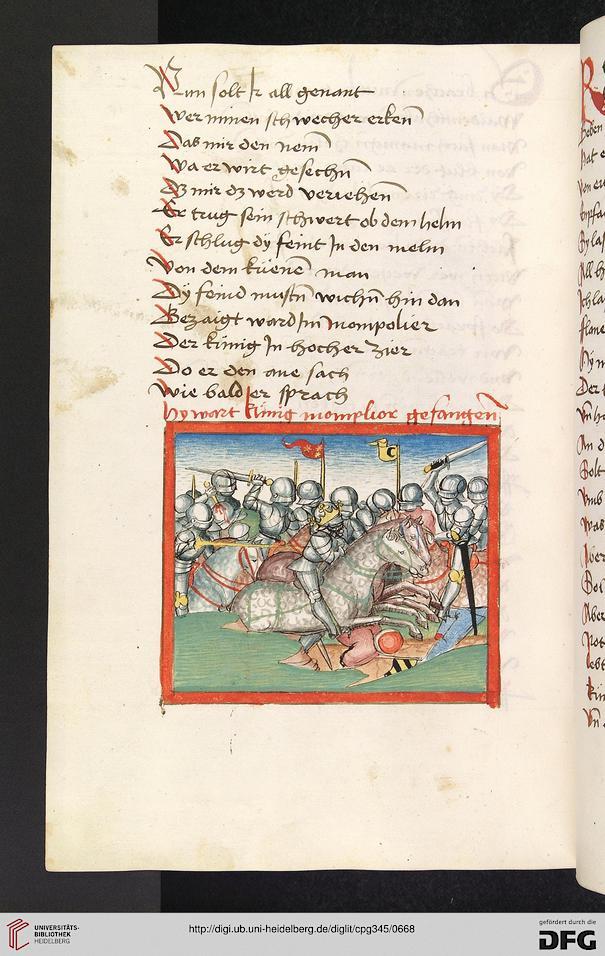 Nun solt Ir all genant
Wer minen schwecher erken
Das mir den nem
Wa er wirt gesechn
Dz mir dz werd veriehen
Er trug sein schwert ob dem helm
Er schlug dy feint In den melm
Von dem küenen man
Dy feind mustn wichn hin dan
Bezaigt ward Im mompolier
Der king In hocher zier
Do er den ane sach
Wie bald er sprach
hy wart king momplior gefangen
UNIVERSITÄTS-
BIBLIOTHEK
HEIDELBERG
http://digi.ub.uni-heidelberg.de/diglit/cpg345/0668
gefördert durch die
DFG